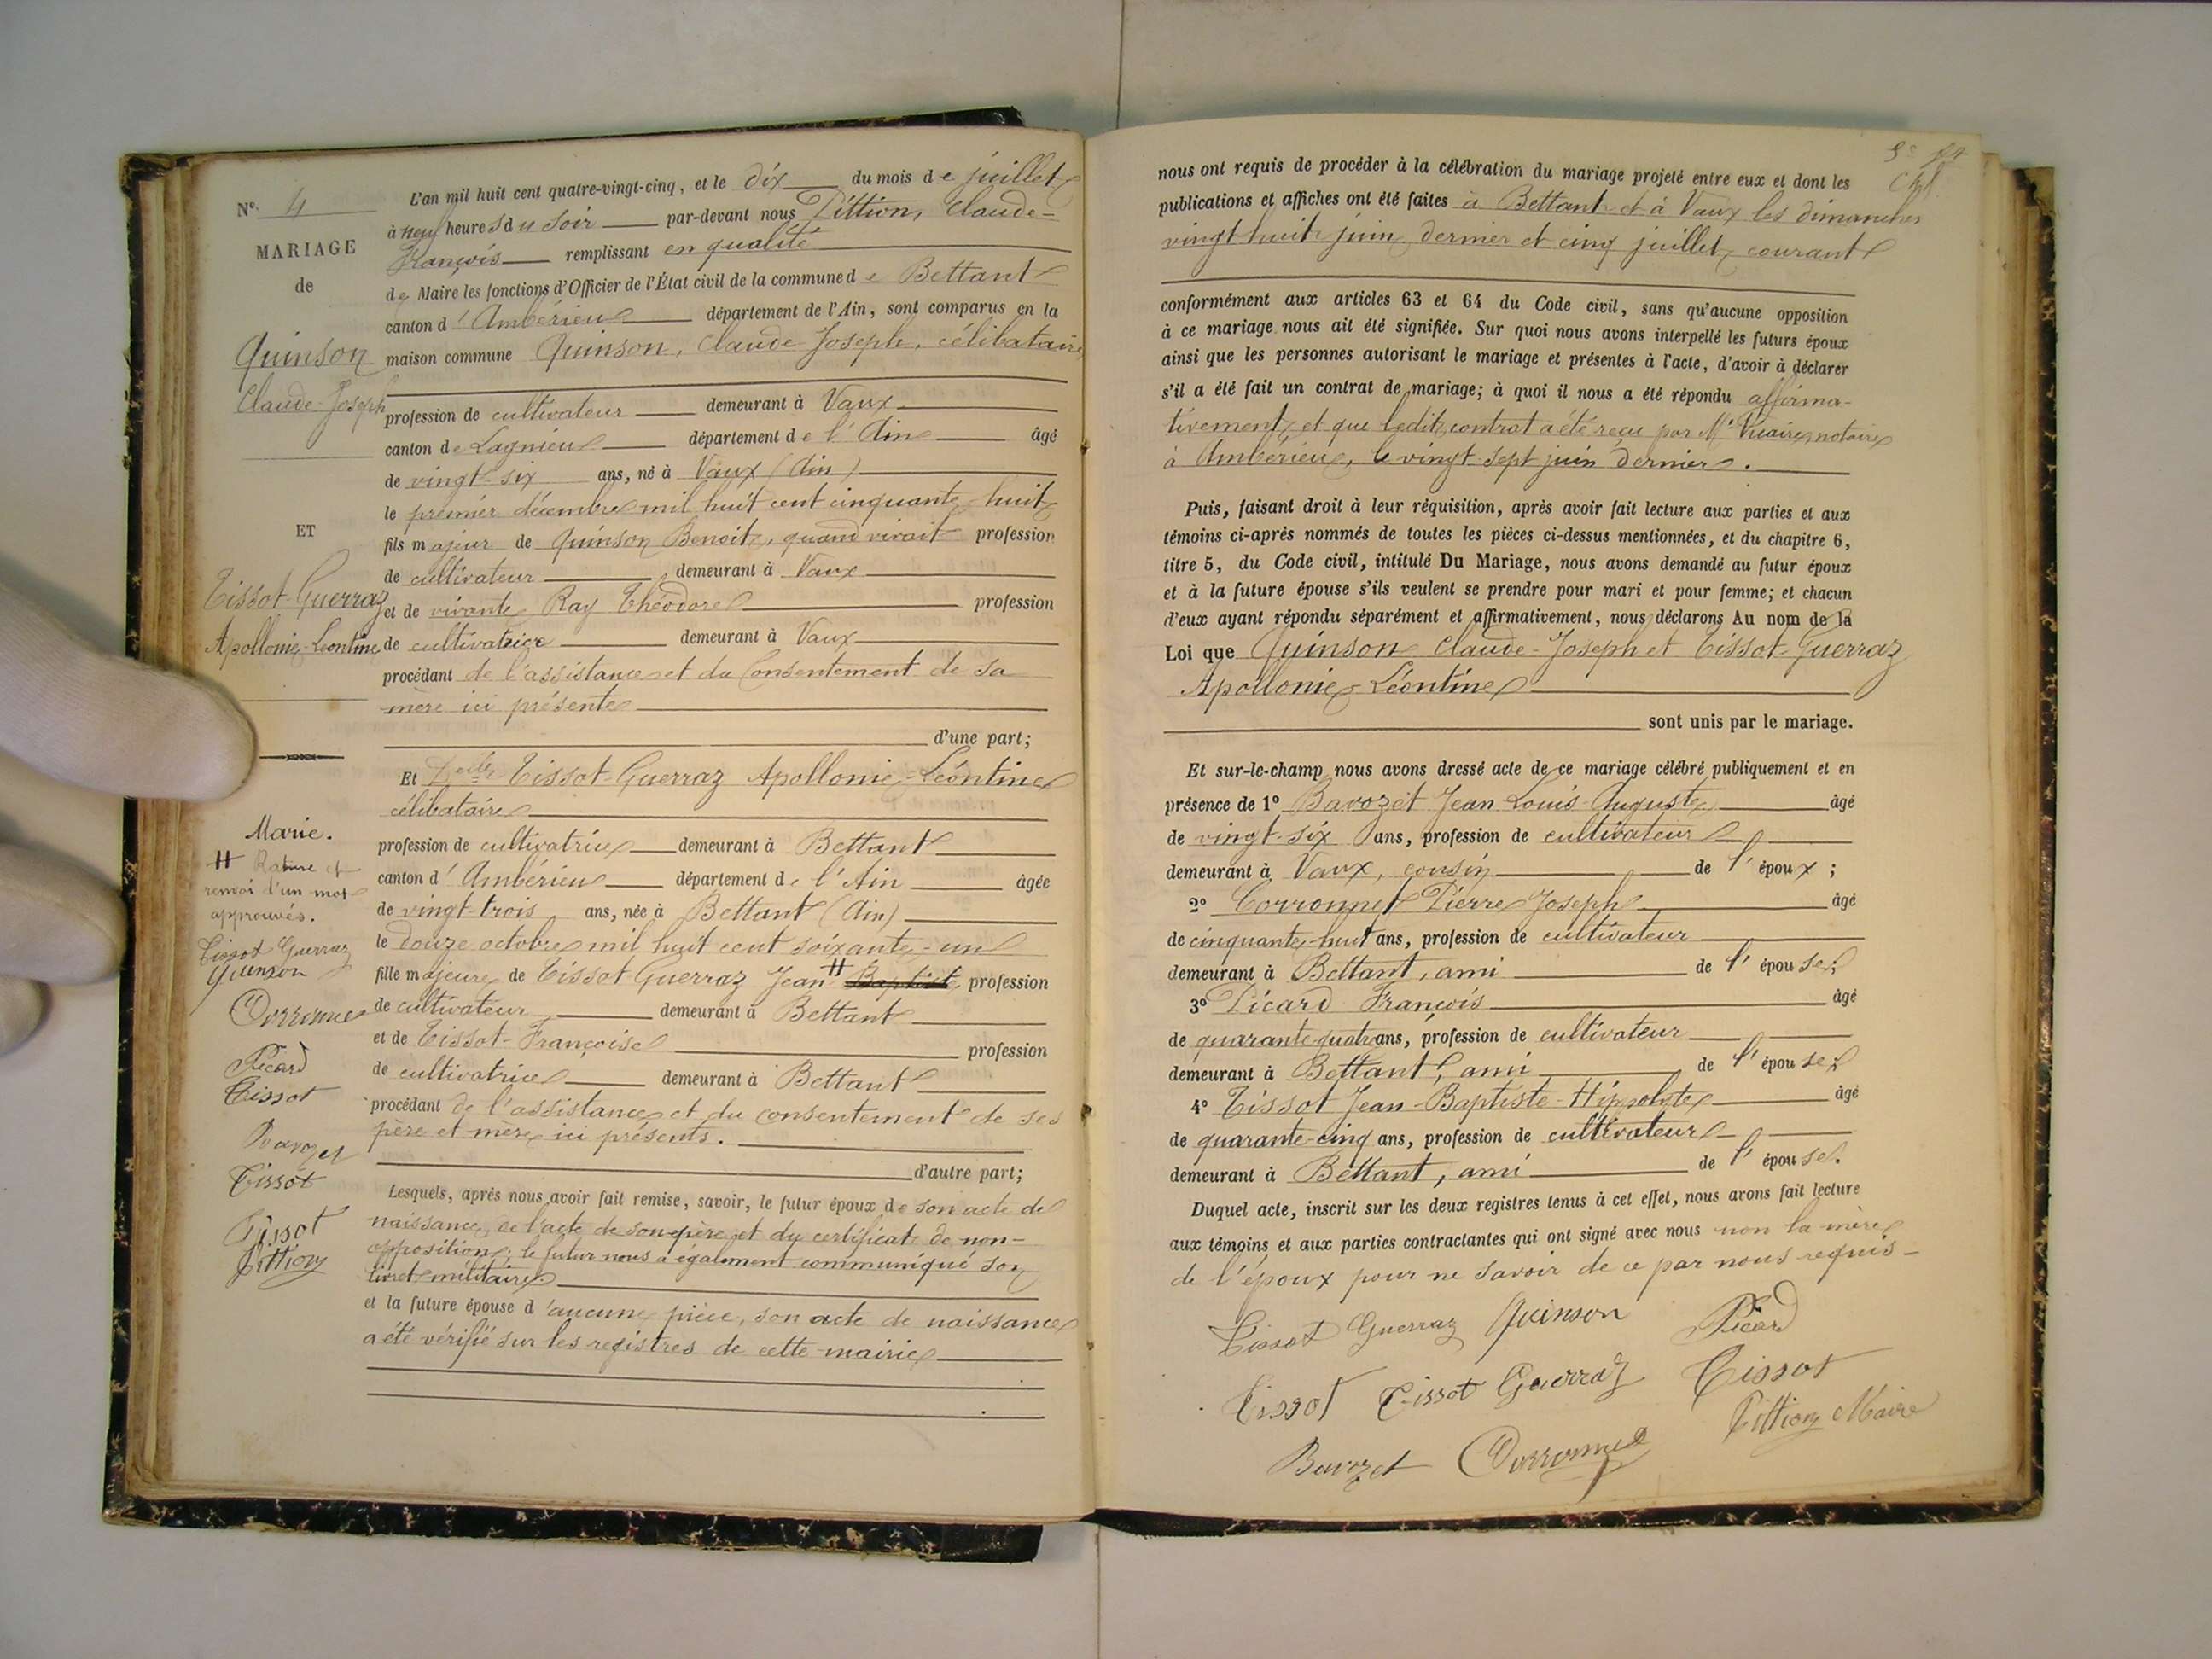 N° 4
MARIAGE
de
Quinson
Claude-Joseph
ET
Tissot-Guerraz
Apollonie-Léontine
Marie.
H Rature et
renvoi d'un mot
approuvés.
Tissot Guerraz
Quinson
Corronnet
Picard
Tissot
Bavozet
Tissot
Tissot
Pittion
L'an mil huit cent quatre-vingt-cinq, et le dix du mois de juillet
à neuf heures du soir par-devant nous Pittion, Claude-
François remplissant en qualité
de Maire les fonctions d'Officier de l'État civil de la commune de Bettant
canton d'Ambérieu département de l'Ain, sont comparus en la
maison commune Quinson, Claude-Joseph, célibataire
profession de cultivateur demeurant à Vaux
canton de Lagnieu département de l'Ain âgé
de vingt-six ans, né à Vaux (Ain)
le premier décembre mil huit cent cinquante-huit
fils majeur de Quinson Benoit, quand vivait profession
de cultivateur, demeurant à Vaux
et de vivante Ray Théodore profession
de cultivatrice demeurant à Vaux
procédant de l'assistance et du Consentement de sa
mère ici présente
d'une part;
Et Delle Tissot-Guerraz Apollonie-Léontine
célibataire
profession de cultivatrice demeurant à Bettant
canton d'Ambérieu département de l'Ain âgée
de vingt-trois ans, née à Bettant (Ain)
le douze octobre mil huit cent soixante-un
fille majeure de Tissot Guerraz Jean H Baptiste profession
de cultivateur demeurant à Bettant
et de Tissot-Françoise profession
de cultivatrice demeurant à Bettant
procédant de l'assistance et du consentement de ses
père et mère ici présents.
d'autre part;
Lesquels, après nous avoir fait remise, savoir, le futur époux de son acte de
naissance, de l'acte de son père et du certificat de non-
opposition; le futur nous a également communiqué son
livret militaire
et la future épouse d'aucune pièce, son acte de naissance
a été vérifié sur les registres de cette mairie
nous ont requis de procéder à la célébration du mariage projeté entre eux et dont les
publications et affiches ont été faites à Bettant et à Vaux les dimanches
vingt huit juin dernier et cinq juillet courant
conformément aux articles 63 et 64 du Code civil, sans qu'aucune opposition
à ce mariage nous ait été signifiée. Sur quoi nous avons interpellé les futurs époux
ainsi que les personnes autorisant le mariage et présentes à l'acte, d'avoir à déclarer
s'il a été fait un contrat de mariage; à quoi il nous a été répondu affirma-
tivement, et que ledit contrat a été reçu par Me Vicaire, notaire
à Ambérieu, le vingt-sept juin dernier.
Puis, faisant droit à leur réquisition, après avoir fait lecture aux parties et aux
témoins ci-après nommés de toutes les pièces ci-dessus mentionnées, et du chapitre 6,
titre 5, du Code civil, intitulé Du Mariage, nous avons demandé au futur époux
et à la future épouse s'ils veulent se prendre pour mari et pour femme; et chacun
d'eux ayant répondu séparément et affirmativement, nous déclarons Au nom de la
Loi que Quinson Claude-Joseph et Tissot-Guerraz
Apollonie-Léontine
sont unis par le mariage.
Et sur-le-champ nous avons dressé acte de ce mariage célébré publiquement et en
présence de 1° Bavozet Jean Louis-Auguste âgé
de vingt-six ans, profession de cultivateur
demeurant à Vaux, cousin de l'époux;
2° Corronnet Pierre Joseph âgé
de cinquante-huit ans, profession de cultivateur
demeurant à Bettant, ami de l'épouse;
3° Picard François âgé
de quarante quatre ans, profession de cultivateur
demeurant à Bettant, ami de l'épouse;
4° Tissot Jean-Baptiste-Hippolyte âgé
de quarante-cinq ans, profession de cultivateur
demeurant à Bettant, ami de l'épouse.
Duquel acte, inscrit sur les deux registres tenus à cet effet, nous avons fait lecture
aux témoins et aux parties contractantes qui ont signé avec nous non la mère
de l'époux pour ne savoir de ce par nous requis-
Tissot Guerraz Quinson Picard
Tissot Tissot Guerraz Tissot
Pittion Maire
Bavozet Corronnet